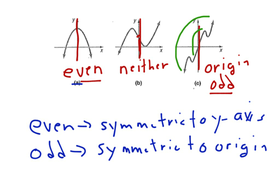 y y y
x x x
even neither origin
odd
(a) (b) (c)
even → symmetric to y-axis
odd → symmetric to origin